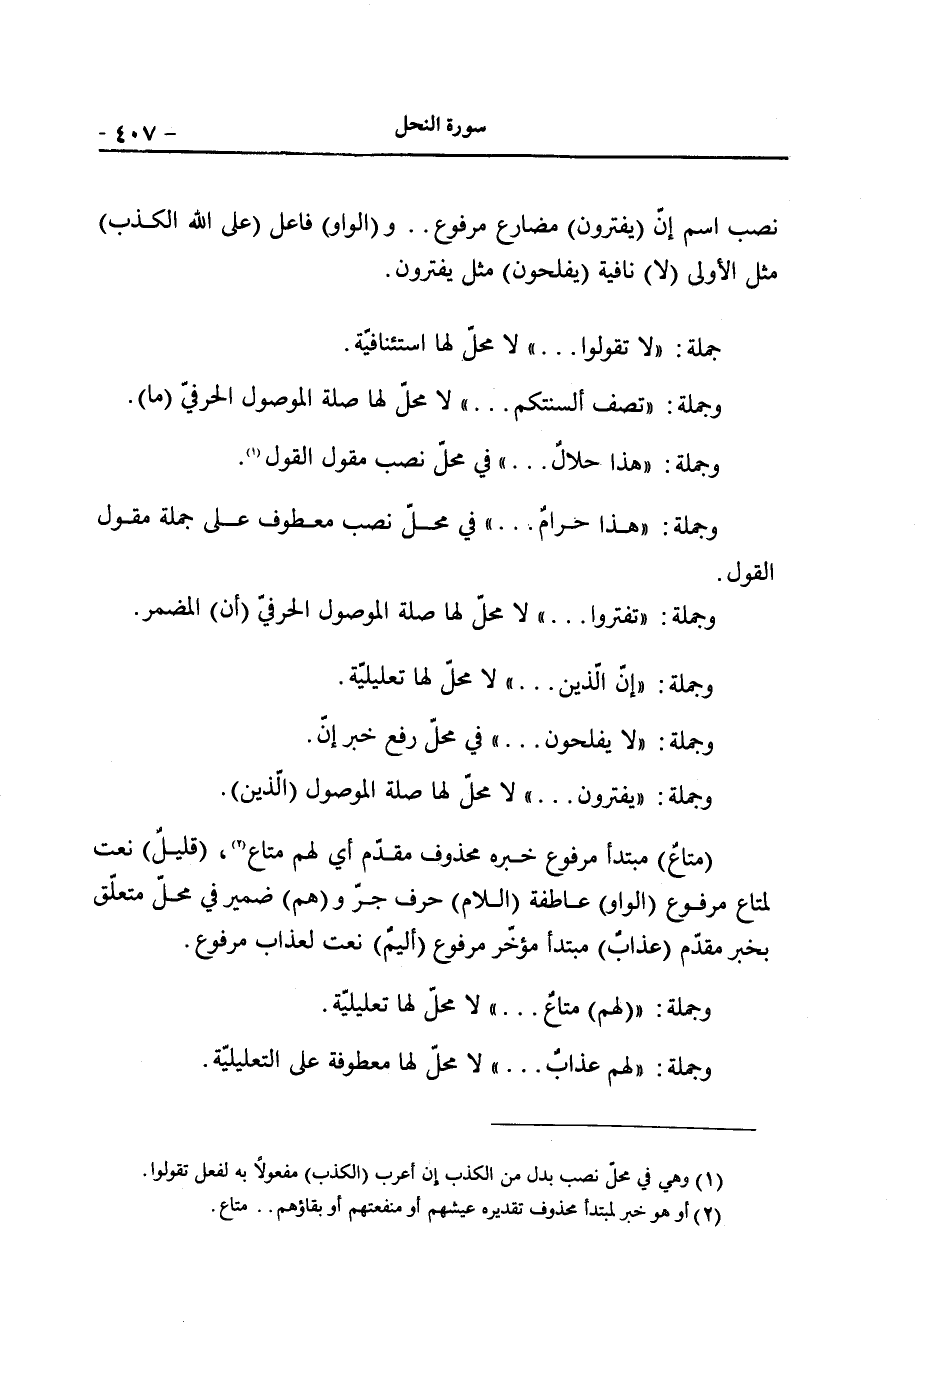 سورة النحل
- ٤٠٧ -
نصب اسم إنّ (يفترون) مضارع مرفوع.. و (الواو) فاعل (على الله الكذب)
مثل الأولى (لا) نافية (يفلحون) مثل يفترون.
جملة: «لا تقولوا...» لا محلّ لها استئنافيّة.
وجملة: «تصف ألسنتكم...» لا محلّ لها صلة الموصول الحرفيّ (ما).
وجملة: «هذا حلالٌ...» في محلّ نصب مقول القول(١).
وجملة: «هذا حرامٌ...» في محلّ نصب معطوف على جملة مقول
القول.
وجملة: «تفتروا...» لا محلّ لها صلة الموصول الحرفيّ (أن) المضمر.
وجملة: «إنّ الّذين...» لا محلّ لها تعليليّة.
وجملة: «لا يفلحون...» في محلّ رفع خبر إنّ.
وجملة: «يفترون...» لا محلّ لها صلة الموصول (الّذين).
(متاعٌ) مبتدأ مرفوع خبره محذوف مقدّم أي لهم متاع(٢)، (قليلٌ) نعت
لمتاع مرفوع (الواو) عاطفة (اللام) حرف جرّ و (هم) ضمير في محلّ متعلّق
بخبر مقدّم (عذابٌ) مبتدأ مؤخّر مرفوع (أليمٌ) نعت لعذاب مرفوع.
وجملة: «(لهم) متاعٌ...» لا محلّ لها تعليليّة.
وجملة: «لهم عذابٌ...» لا محلّ لها معطوفة على التعليليّة.
(١) وهي في محلّ نصب بدل من الكذب إن أعرب (الكذب) مفعولاً به لفعل تقولوا.
(٢) أو هو خبر لمبتدأ محذوف تقديره عيشهم أو منفعتهم أو بقاؤهم.. متاع.